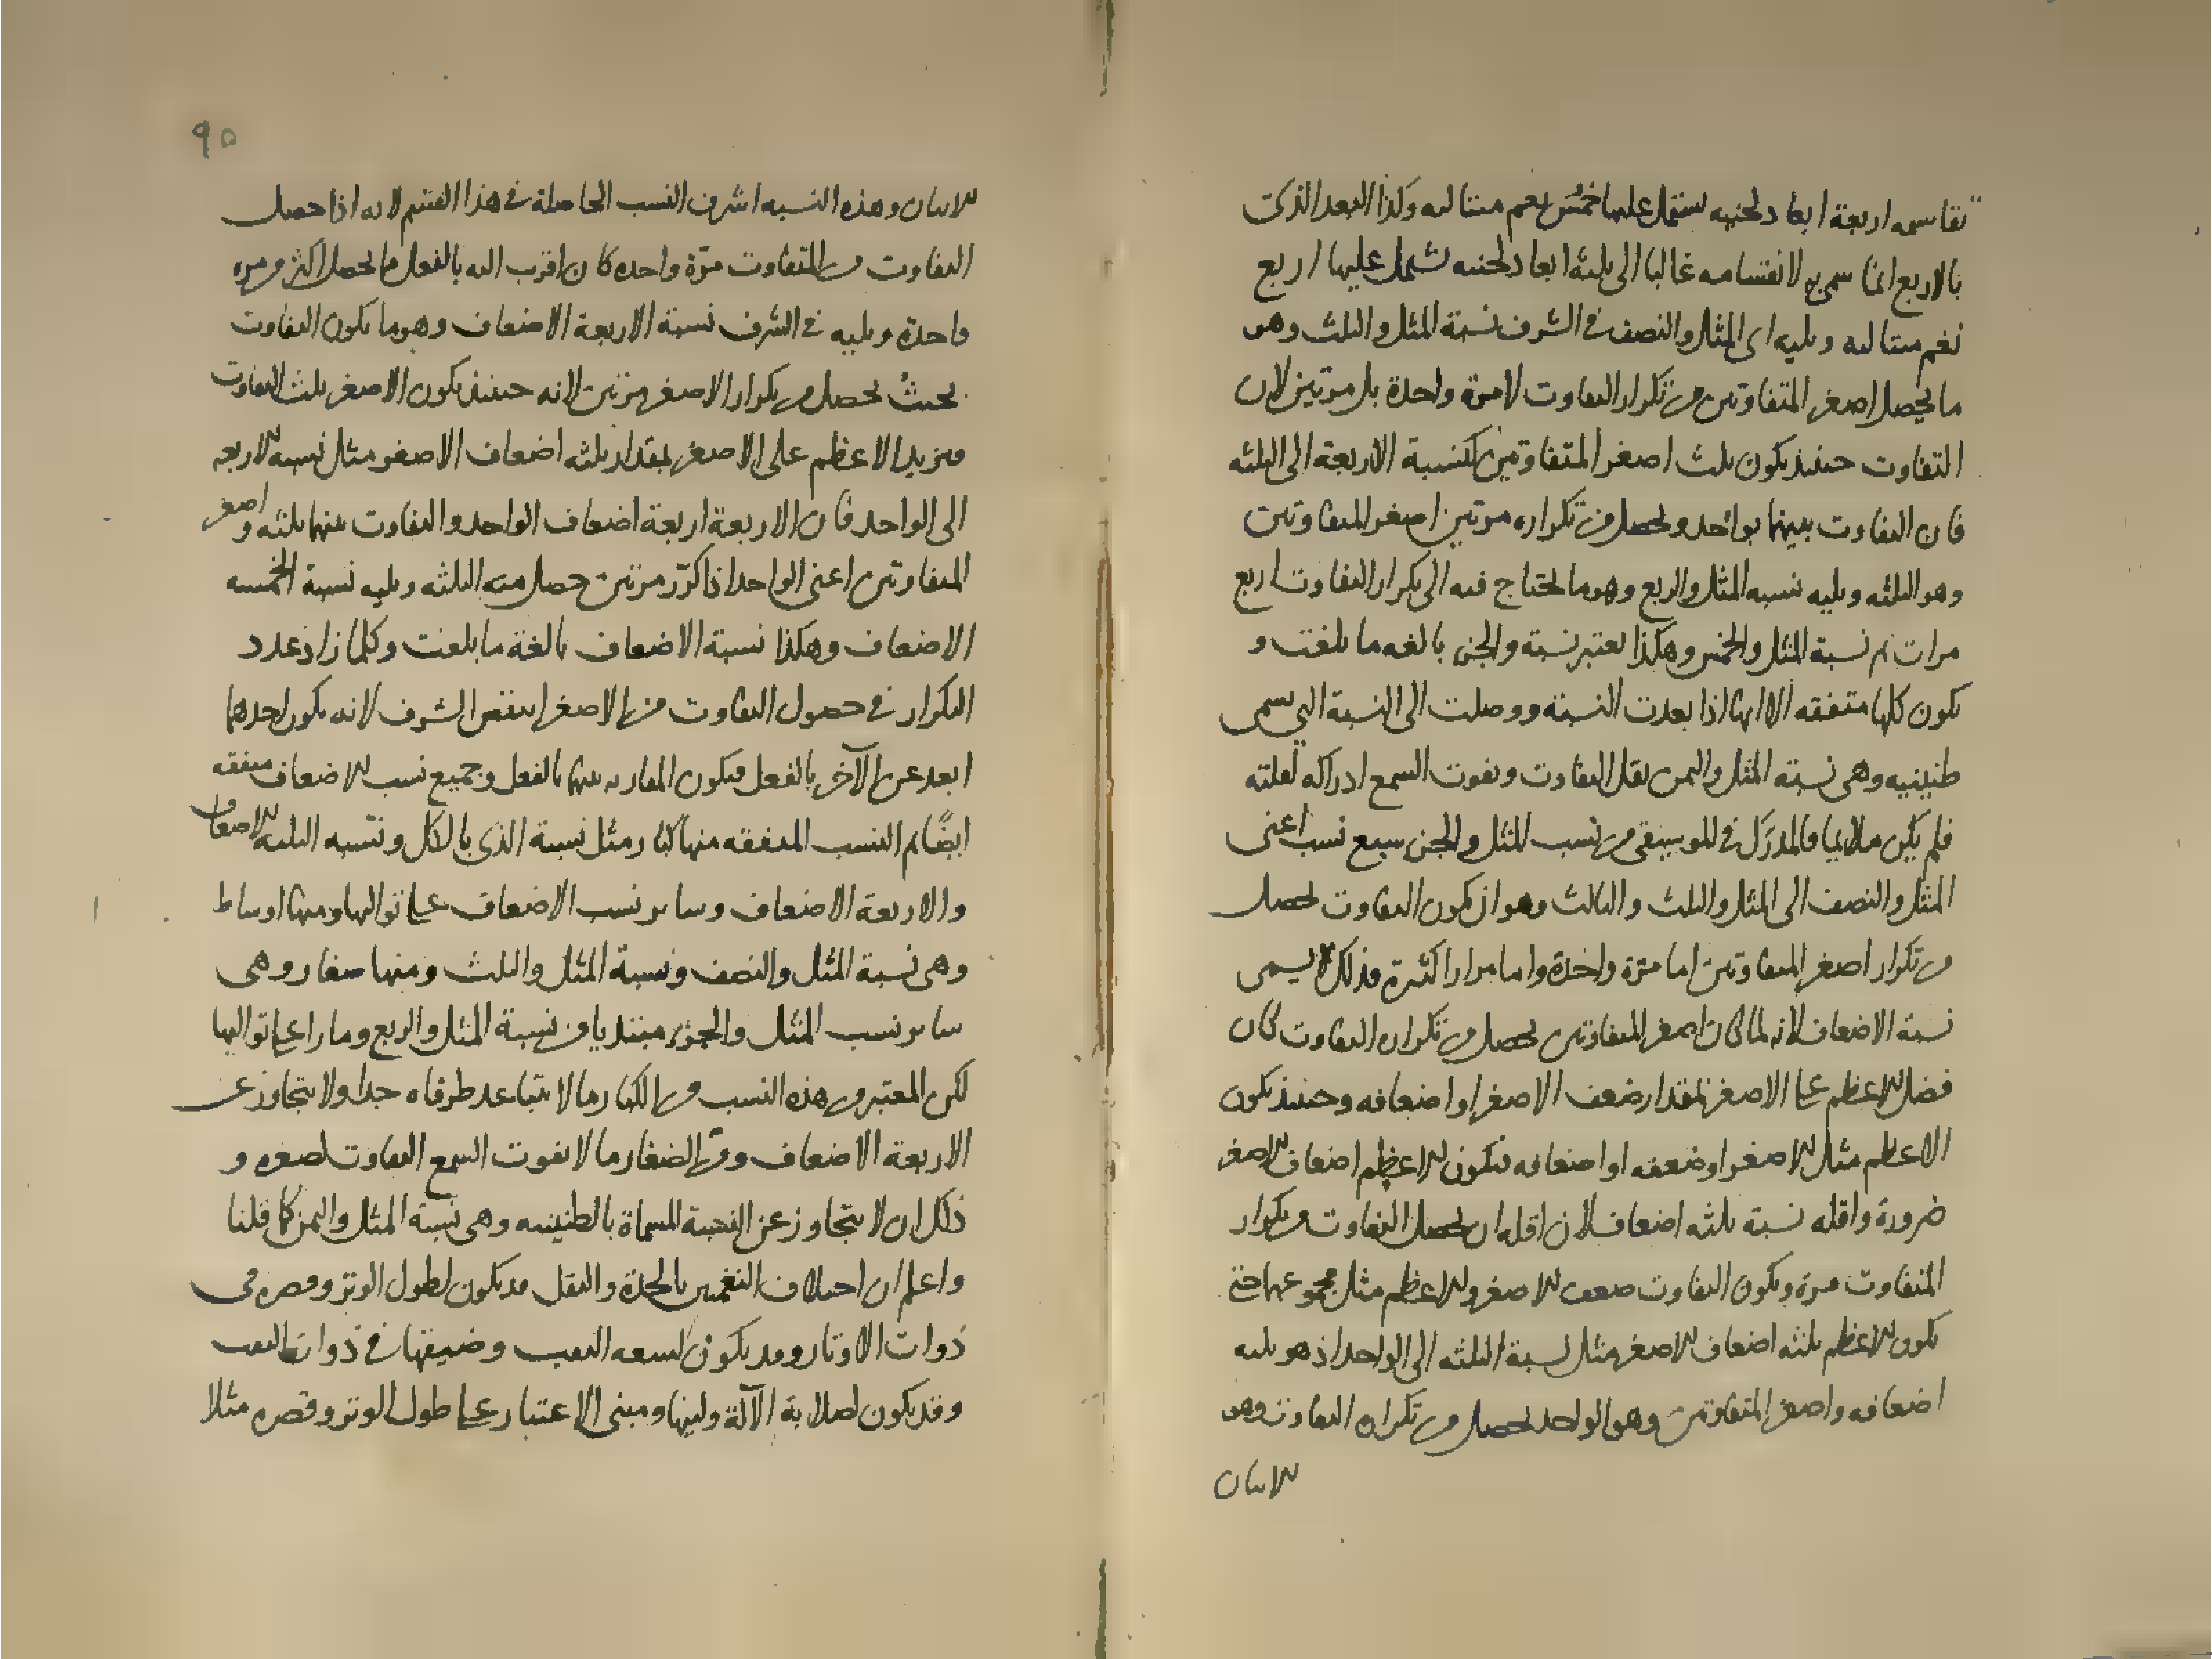 تقاسمه اربعة ابعاد لحنيه يشتمل عليها خمس نغم متتاليه وكذا البعد الذى
بالاربع انما سمى به لانقسامه غالبا الى ثلثة ابعاد لحنيه تشتمل عليها اربع
نغم متتاليه ويليه اى المثل والنصف فى الشرف نسبة المثل والثلث وهو
ما يحصل اصغر المتفاوتين من تكرار التفاوت لا مرة واحدة بل مرتين لان
التفاوت حينئذ يكون ثلث اصغر المتفاوتين كنسبة الاربعة الى الثلثه
فان التفاوت بينهما بواحد ويحصل من تكراره مرتين اصغر المتفاوتين
وهو الثلثه ويليه نسبه المثل والربع وهو ما يحتاج فيه الى تكرار التفاوت اربع
مرات ثم نسبة المثل والخمس وهكذا يعتبر نسبة والجزء بالغه ما بلغت و
يكون كلها متفقه الا انها اذا بعدت النسبة ووصلت الى النسبة التى تسمى
طنينيه وهى نسبة المثل والثمن يقل التفاوت ويفوت السمع ادراكه لقلته
فلم يكن ملايما فالمدرك فى الموسيقى من نسب المثل والجزء سبع نسب اعنى
المثل والنصف الى المثل والثلث والثالث وهو ان يكون التفاوت يحصل
من تكرار اصغر المتفاوتين اما مرة واحدة واما مرارا كثيرة فذلك يسمى
نسبة الاضعاف لانه لما كان اصغر المتفاوتين يحصل من تكراره التفاوت كان
فضل الاعظم على الاصغر بمقدار ضعف الاصغر او اضعافه وحينئذ يكون
الاعظم مثل الاصغر او ضعفه او اضعافه فيكون الاعظم اضعاف الاصغر
ضرورة واقله نسبة ثلثه اضعاف لان اقله ان يحصل التفاوت من تكرار
المتفاوت مرة ويكون التفاوت ضعف الاصغر والاعظم مثل مجموعهما حتى
يكون الاعظم ثلثه اضعاف الاصغر مثل نسبة الثلثه الى الواحد اذ هو ثلثه
اضعافه واصغر المتفاوتين وهو الواحد يحصل من تكراره التفاوت وهو
الاثنان
٩٥
الاثنان وهذه النسبه اشرف النسب الحاصلة فى هذا القسم لانه اذا حصل
التفاوت من المتفاوت مرة واحده كان اقرب اليه بالفعل مما يحصل اكثر من مره
واحدة ويليه فى الشرف نسبة الاربعة الاضعاف وهو ما يكون التفاوت
بحيث يحصل من تكرار الاصغر مرتين لانه حينئذ يكون الاصغر ثلث التفاوت
فيزيد الاعظم على الاصغر بمقدار ثلثه اضعاف الاصغر مثال نسبه الاربعه
الى الواحد فان الاربعة اربعة اضعاف الواحد والتفاوت بينهما ثلثه و اصغر
المتفاوتين اعنى الواحد اذا كرر مرتين حصل منه الثلثه ويليه نسبة الخمسه
الاضعاف وهكذا نسبة الاضعاف بالغة ما بلغت وكلما زاد عدد
التكرار فى حصول التفاوت من الاصغر انتقص الشرف لانه يكون احدهما
ابعد عن الآخر بالفعل فيكون المقاربه بينهما بالفعل وجميع نسب الاضعاف متفقه
ايضا ثم النسب المتفقه منها كبار مثل نسبة الذى بالكل ونسبه الثلثه الاضعاف
والاربعة الاضعاف وساير نسب الاضعاف على تواليها ومنها اوساط
وهى نسبة المثل والنصف ونسبة المثل والثلث ومنها صغار وهى
ساير نسب المثل والجزء مبتديا من نسبة المثل والربع ومارا على تواليها
لكن المعتبر من هذه النسب من الكبار ما لا يتباعد طرفاه جدا ولا يتجاوز عن
الاربعة الاضعاف ومن الصغار ما لا يفوت السمع التفاوت لصغره و
ذلك ان لا يتجاوز عن النسبة المسماة بالطنينيه وهى نسبة المثل والثمن كما قلنا
واعلم ان اختلاف النغمتين بالحدة والثقل قد يكون لطول الوتر وقصره فى
ذوات الاوتار وقد يكون لسعه الثقب وضيقها فى ذوات الثقب
وقد يكون لصلابة الآلة ولينها ومبنى الاعتبار على طول الوتر وقصره مثلا